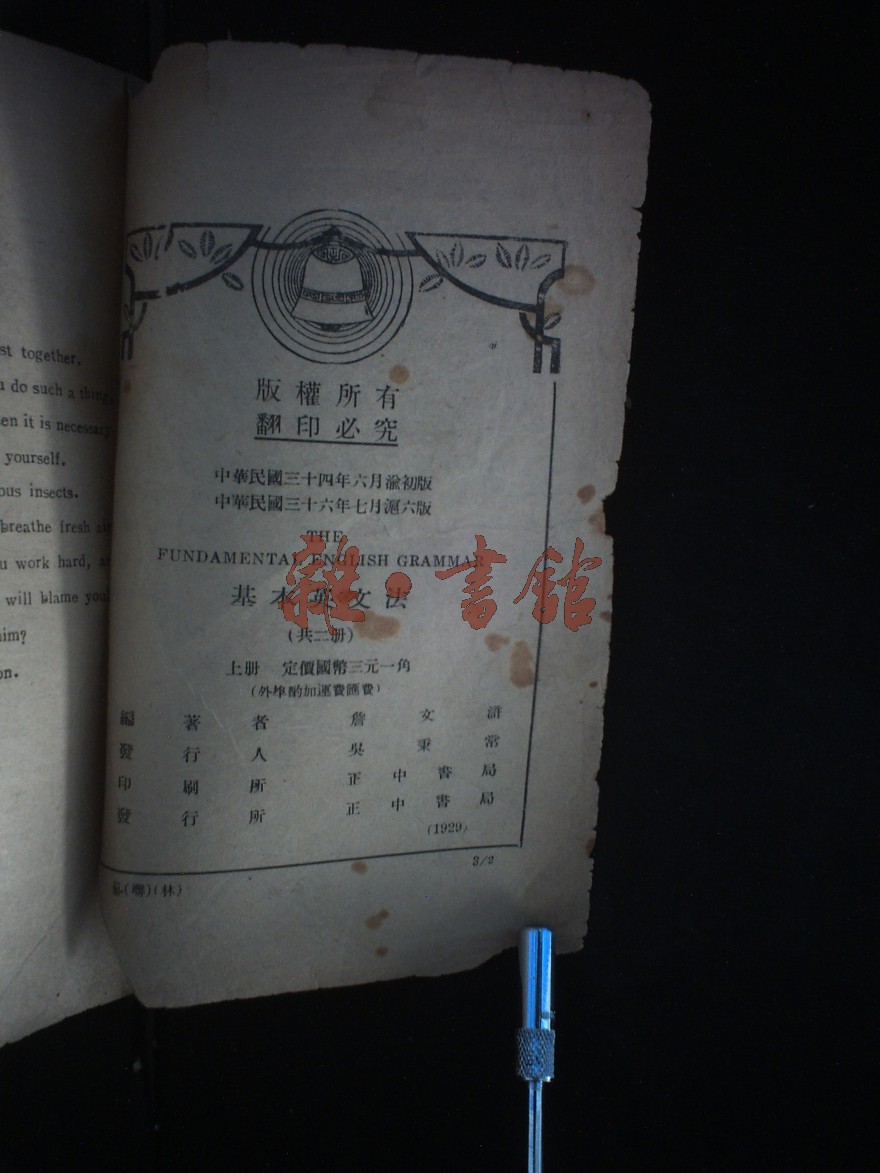 st together.
u do such a thing,
en it is necessary
yourself.
ous insects.
breathe fresh air
u work hard, a
will blame you
him?
on.
版權所有
翻印必究
中華民國三十四年六月渝初版
中華民國三十六年七月滬六版
THE
FUNDAMENTAL ENGLISH GRAMMAR
基本英文法
(共二册)
上册 定價國幣三元一角
(外埠酌加運費匯費)
編著者 詹文滸
發行人 吳秉常
印刷所 正中書局
發行所 正中書局
(1929)
3/2
(聯)(林)
雜·書館